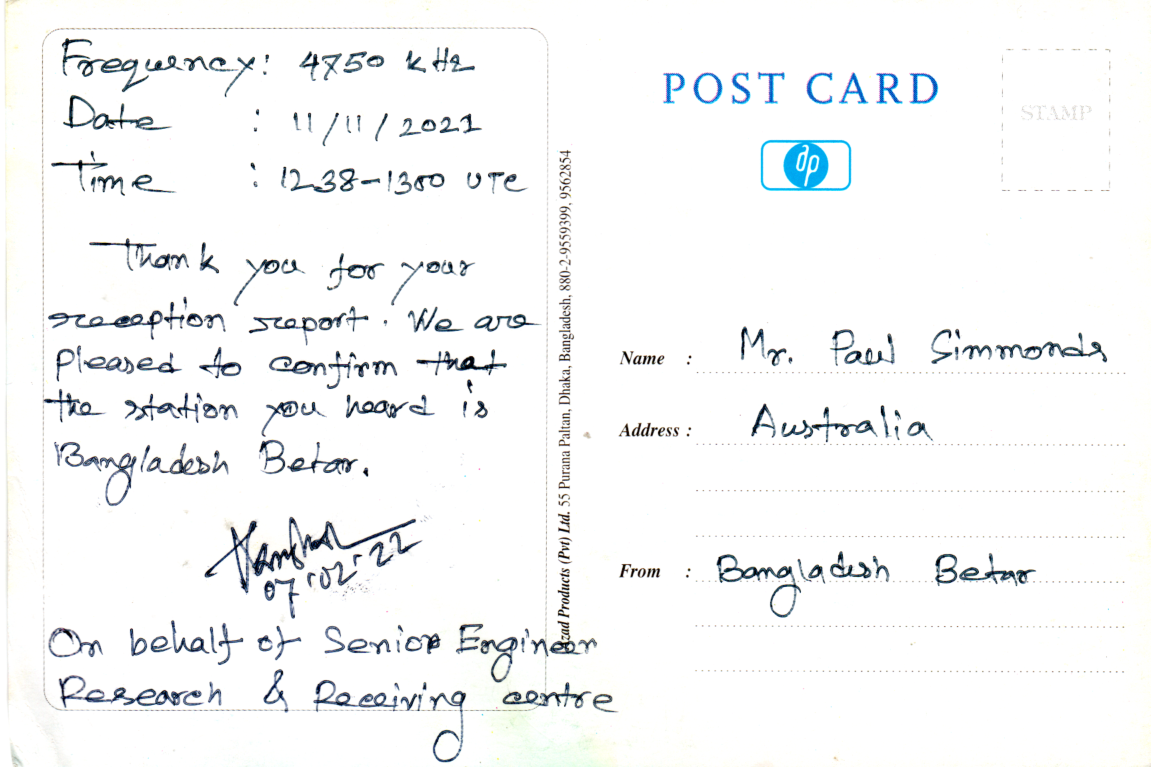 Frequency: 4750 kHz
Date : 11/11/2021
Time : 1238-1300 UTC
Thank you for your
reception report. We are
pleased to confirm that
the station you heard is
Bangladesh Betar.
07.02.22
On behalf of Senior Engineer
Research & Receiving centre
Azad Products (Pvt) Ltd. 55 Purana Paltan, Dhaka, Bangladesh, 880-2-9559399, 9562854
POST CARD
dp
STAMP
Name : Mr. Paul Simmonds
Address : Australia
From : Bangladesh Betar